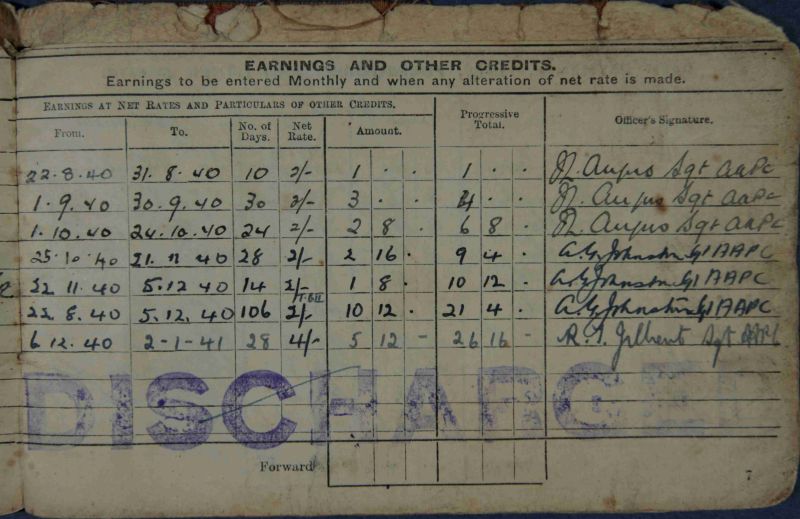 EARNINGS AND OTHER CREDITS.
Earnings to be entered Monthly and when any alteration of net rate is made.
EARNINGS AT NET RATES AND PARTICULARS OF OTHER CREDITS. Progressive Total. Officer's Signature.
From. To. No. of Days. Net Rate. Amount.
22.8.40 31.8.40 10 2/- 1 . . 1 . . Angus Sgt AAPC
1.9.40 30.9.40 30 2/- 3 . . 4 . . Angus Sgt AAPC
1.10.40 24.10.40 24 2/- 2 8 . 6 8 . Angus Sgt AAPC
25.10.40 21.11.40 28 2/- 2 16 . 9 4 . A.G. Johnston AAPC
22.11.40 5.12.40 14 2/- 1 8 . 10 12 . A.G. Johnston AAPC
22.8.40 5.12.40 106 2/- 10 12 . 21 4 . A.G. Johnston AAPC
6.12.40 2-1-41 28 4/- 5 12 - 26 16 - Gilbert Sgt AAPC
DISCHARGED
Forward
7